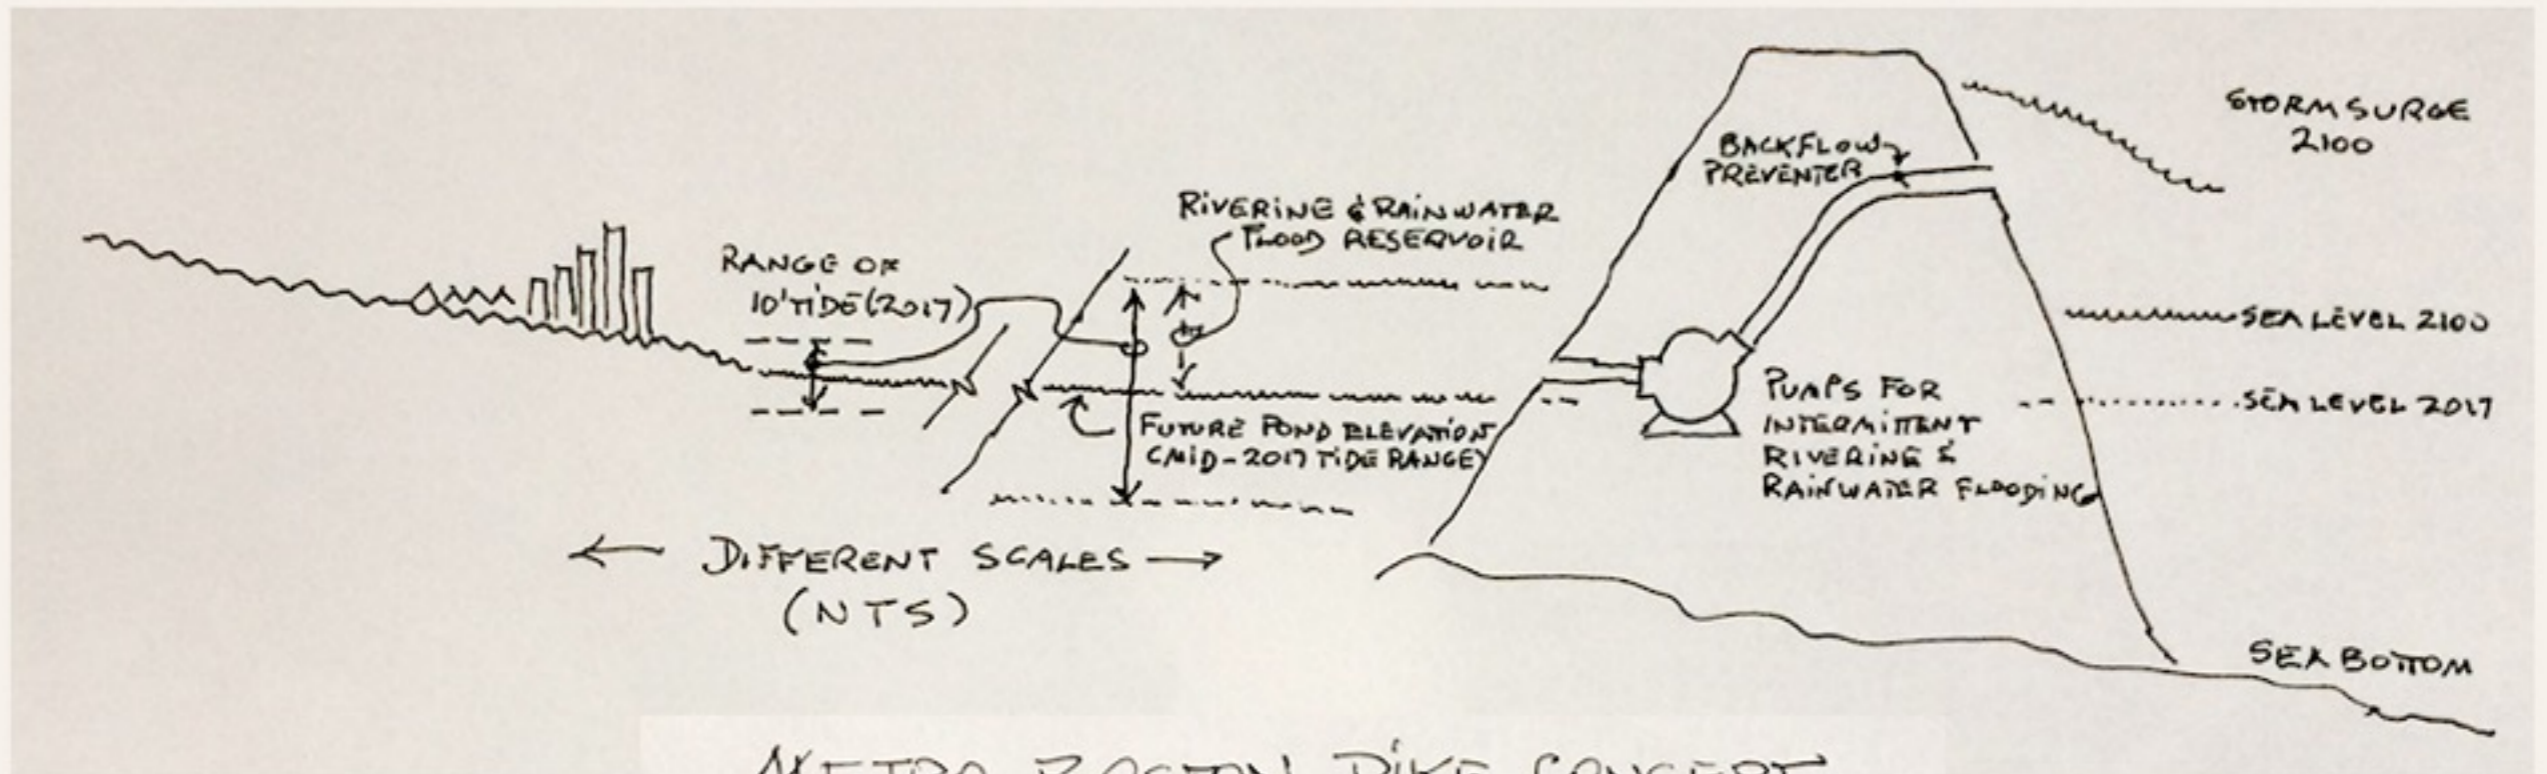 STORM SURGE
2100
BACKFLOW
PREVENTER
RIVERINE & RAINWATER
FLOOD RESERVOIR
RANGE OF
10' TIDE (2017)
SEA LEVEL 2100
SEA LEVEL 2017
PUMPS FOR
INTERMITTENT
RIVERINE &
RAINWATER FLOODING
FUTURE POND ELEVATION
(MID-2017 TIDE RANGE)
← DIFFERENT SCALES →
(NTS)
SEA BOTTOM
METRO BOSTON DIKE CONCEPT